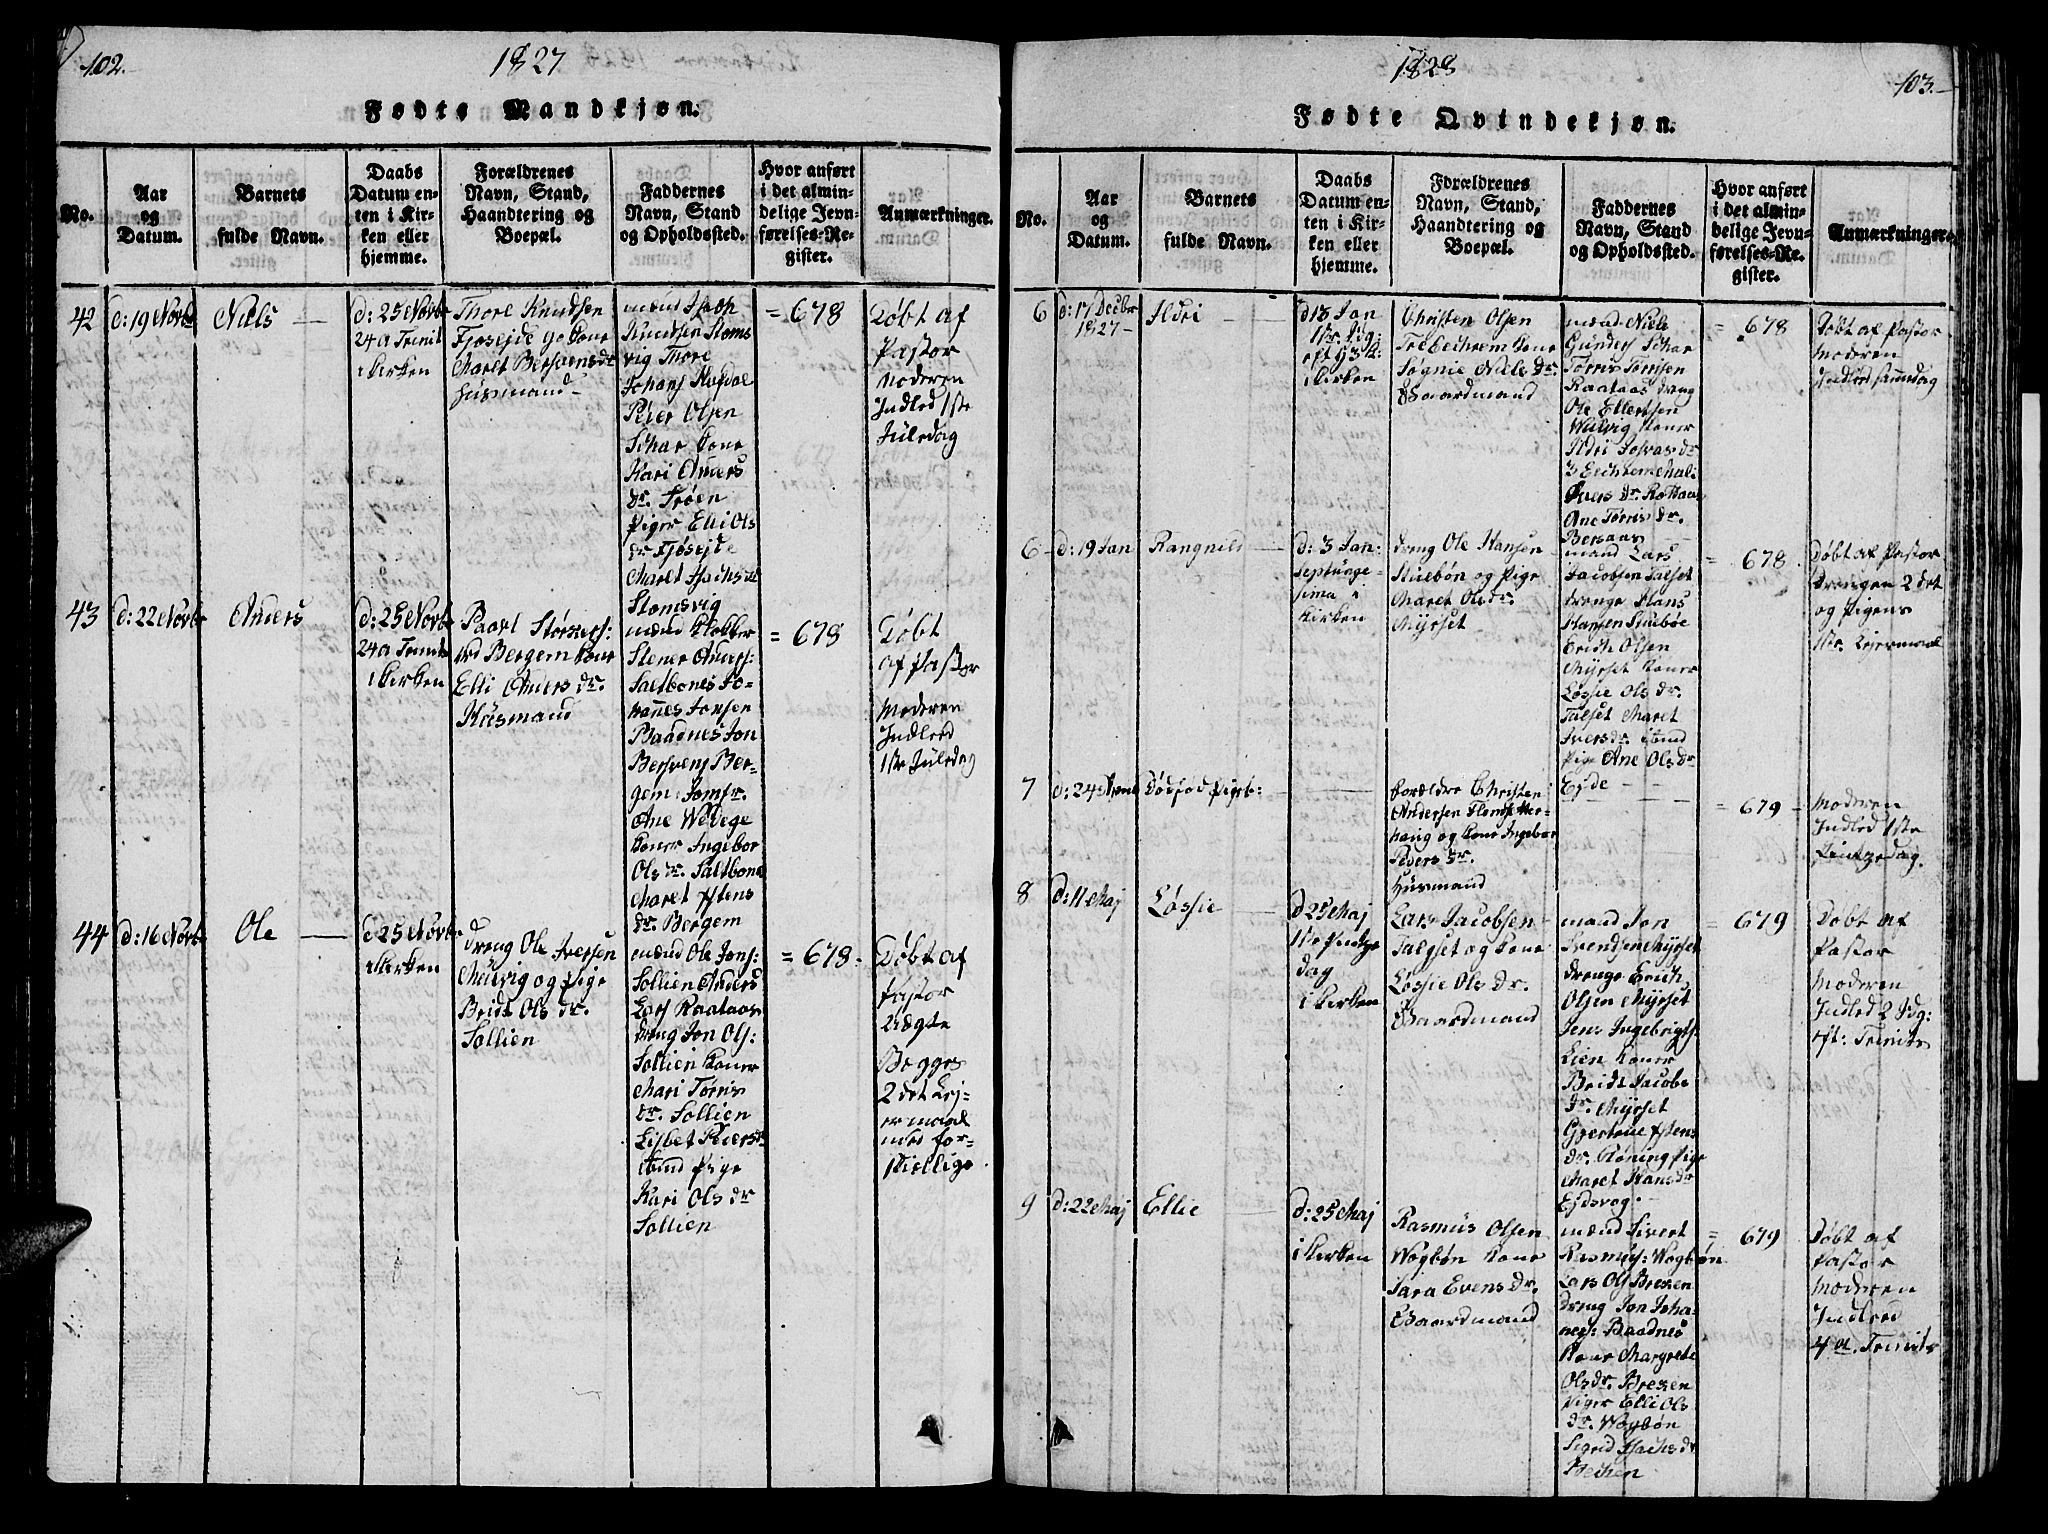 102.
1827
Fødte Mandkjøn.
No.
Aar
og
Datum.
Barnets
fulde Navn.
Daabs
Datum en-
ten i Kir-
ken eller
hjemme.
Forældrenes
Navn, Stand,
Haandtering og
Boepæl.
Faddernes
Navn, Stand
og Opholdssted.
Hvor anført
i det almin-
delige Jevn-
førelses-Re-
gister.
Anmærkninger.
42
d: 19 Novbr
Niels
d: 25 Novbr
24 a Trinit
i Kirken
Thore Knudsen
Fjosejde og Kone
Maret
Huusmand
Knudsen Stoms
vig Thore
Peder Olsen
Schar Kone
Kari Anders
dr. Trøen
Piger Elli Ols
dr. Fjøsejde
Maret
Stomsvig
= 678
Døbt af
Pastor
Moderen
Indled 1ste
Juledag
43
d: 22 Novbr
Anders
d: 25 Novbr
24 a Trinit
i Kirken
Paul
Bergem Kone
Elli Anders dr.
Huusmand
mænd Klokker
Stener Anders:
Saltbones Jo-
hanes Jonsen
Baadnes Jon
Bersvens Ber-
gem: Jomfr.
Ane Wedege
Koner Ingebor
Ols dr. Saltbone
Maret Estens
dr. Bergem
= 678
Døbt
af Pastor
Moderen
Indled
1ste Juledag
44
d: 16 Novbr
Ole
d 25 Novbr
i Kirken
dreng Ole Iversen
Meisvig og Pige
Bridt Ols dr.
Sollien
mænd Ole Jons:
Sollien Anders
Lars Raataas
dreng Jon Ols:
Sollien Koner
Mari Tørris
dr. Sollien
Lisbet Peders dr
ibind Pige
Kari Ols dr
Sollien
= 678.
Døbt af
Pastor
Uægte
Begges
2det Lej-
ermaal
med for-
skiellige
1828
103.
Fødte Qvindekjøn.
No.
Aar
og
Datum.
Barnets
fulde Navn.
Daabs
Datum en-
ten i Kir-
ken eller
hjemme.
Forældrenes
Navn, Stand,
Haandtering og
Boepæl.
Faddernes
Navn, Stand
og Opholdssted.
Hvor anført
i det almin-
delige Jevn-
førelses-Re-
gister.
Anmærkninger
6
d: 17 Decbr
1827
Ildri
d 13 Jan
i Kirken
Christen Olsen
Kone
Niels dr.
Gaardmand
mænd Niels
Gunders Schar
Tørris Tørrisen
Raataas dreng
Ole Ellertsen
Koner
Ildri
Ivers dr.
Ane Tørris dr.
Bersaas
= 678
Døbt af Pastor
Moderen
Indled samme dag
6
d: 19 Jan
Rangnild
d: 3 Jan:
Septuage-
sima i
Kirken
dreng Ole Hansen
Stuebøn og Pige
Maret Ols dr.
Myrset
mand Lars
Jacobsen Talset
drenge Hans
Hansen Stuebøe
Erich Olsen
Myrset Koner
Løssie Ols dr.
Talset Maret
Ivers dr. ibind
Pige Ane Ols dr
Ejde
= 678.
Døbt af Pastor
Drengen 2det
og Pigens
1ste Lejermaal
7
Dødfød Pigeb:
Forældre Christen
Andersen
og Kone Ingebor
Peders dr.
Huusmand
= 679
Moderen
Indled 1ste
Pintsedag
8
d: 11 Maj
Løssie
d 25 Maj
1ste Pintse
dag
i Kirken
Lars Jacobsen
Talgset og Kone
Løssie Ols dr.
Gaardmand
mænd Jon
Svendsen Myrset
drenge Erich
Olsen Myrset
Jens Ingebrigts:
Lien Koner
Bridt Jacobs
dr. Myrset
Gjertrue Estens
dr. Høning Pige
Maret Hans dr
Ejdsvog
= 679
Døbt af
Pastor
Moderen
Indled 2 Sdg:
eft: Trinits
9
d: 22 Maj
Ellie
d: 25 Maj
i Kirken
Rasmus Olsen
Wogbøn Kone
Sara Evens dr.
Gaardmand
mænd Sivert
Rasmus: Wogbøn
Lars Ols Brexen
dreng Jon Joha-
nes: Baadnes
Kone Margrete
Ols dr. Brexen
Piger Elli Ols
dr. Wogbøn
Sigrid Isachs dr
= 679
Døbt af
Pastor
Moderen
Indled
4 a. Trinits